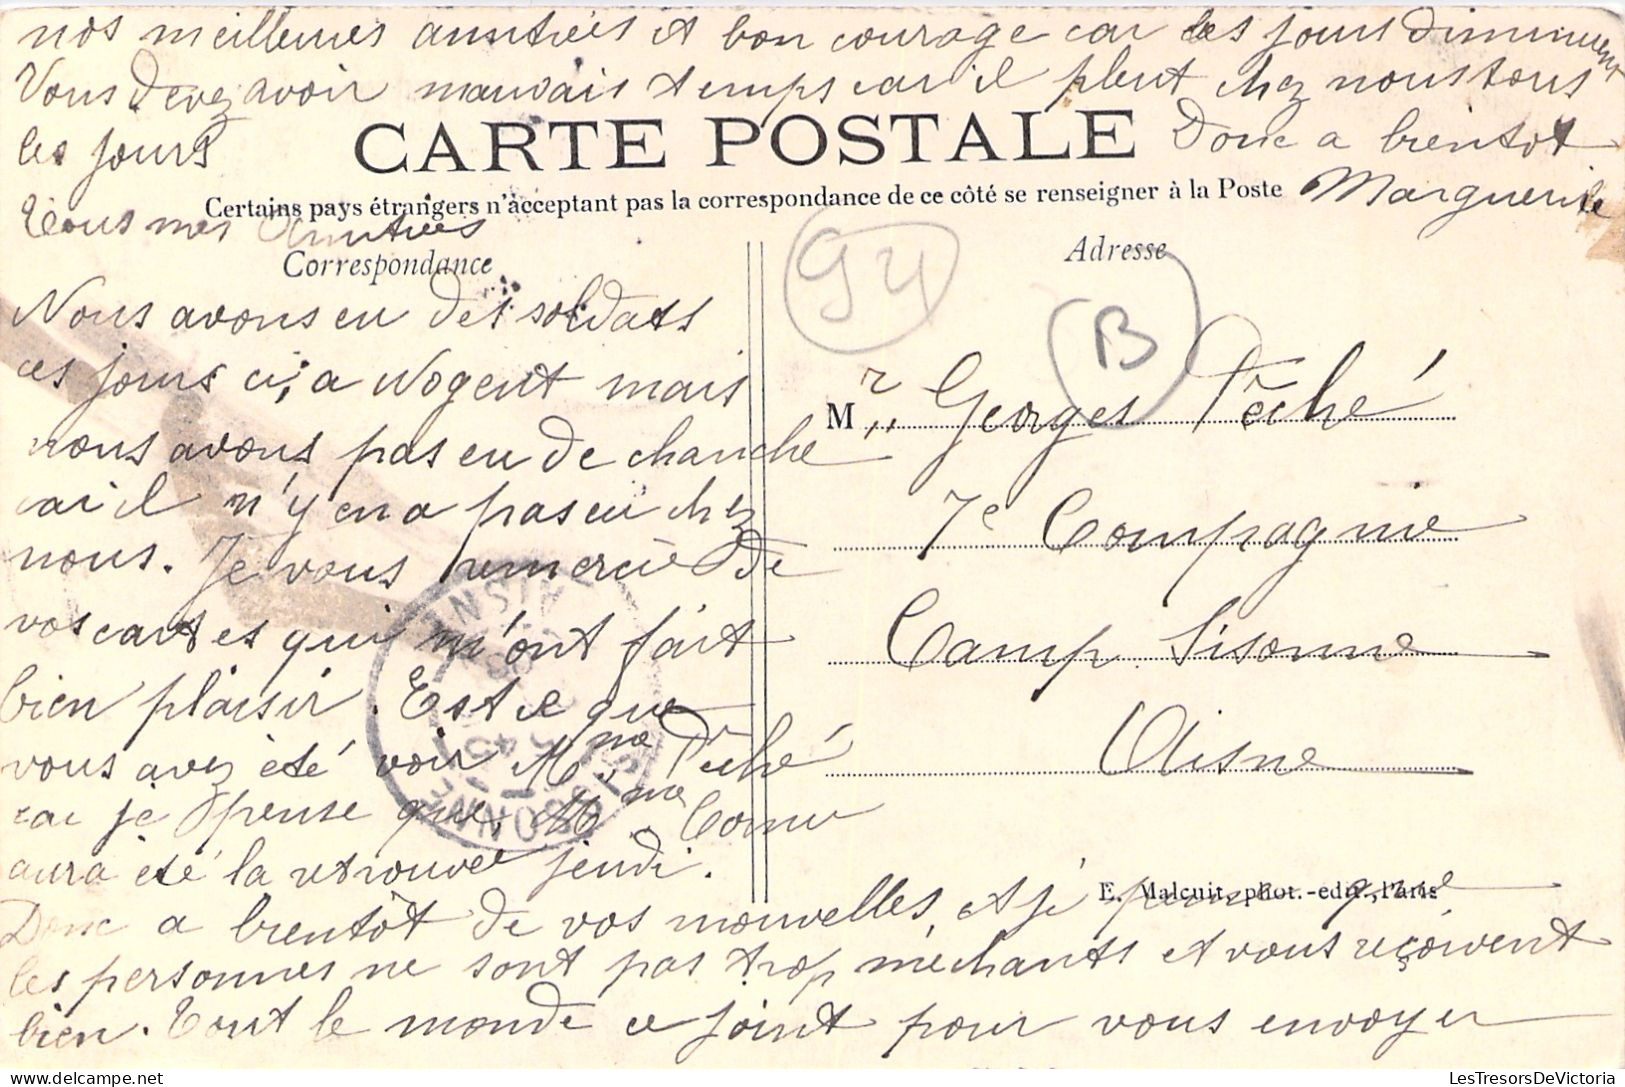 nos meilleures amitiées et bon courage car les jours diminuent
Vous devez avoir mauvais temps car il pleut chez nous tous
les jours
CARTE POSTALE
Donc a bientot
Certains pays étrangers n'acceptent pas la correspondance de ce côté se renseigner à la Poste
Marguerite
Tous mes Amitiées
Correspondance
Nous avons eu des soldats
ces jours ci, a Nogent mais
nous avons pas eu de chanche
car il n'y en a pas eu chez
nous. Je vous remercie de
vos cartes qui m'ont fait
bien plaisir. Est ce que
vous avez été voir Mme Péché
car je pense que Mme Cornu
aura été la retrouvée jeudi.
Donc a bientôt de vos nouvelles, et je pense que
les personnes ne sont pas trop méchants et vous reçoivent
bien. Tout le monde ce joint pour vous envoyer
94
B
Adresse
Mr Georges Péché
7e Compagnie
Camp Sisonne
Aisne
E. Malcuit, phot.-edit., Paris
SISSONNE
AISNE
LesTresorsDeVictoria